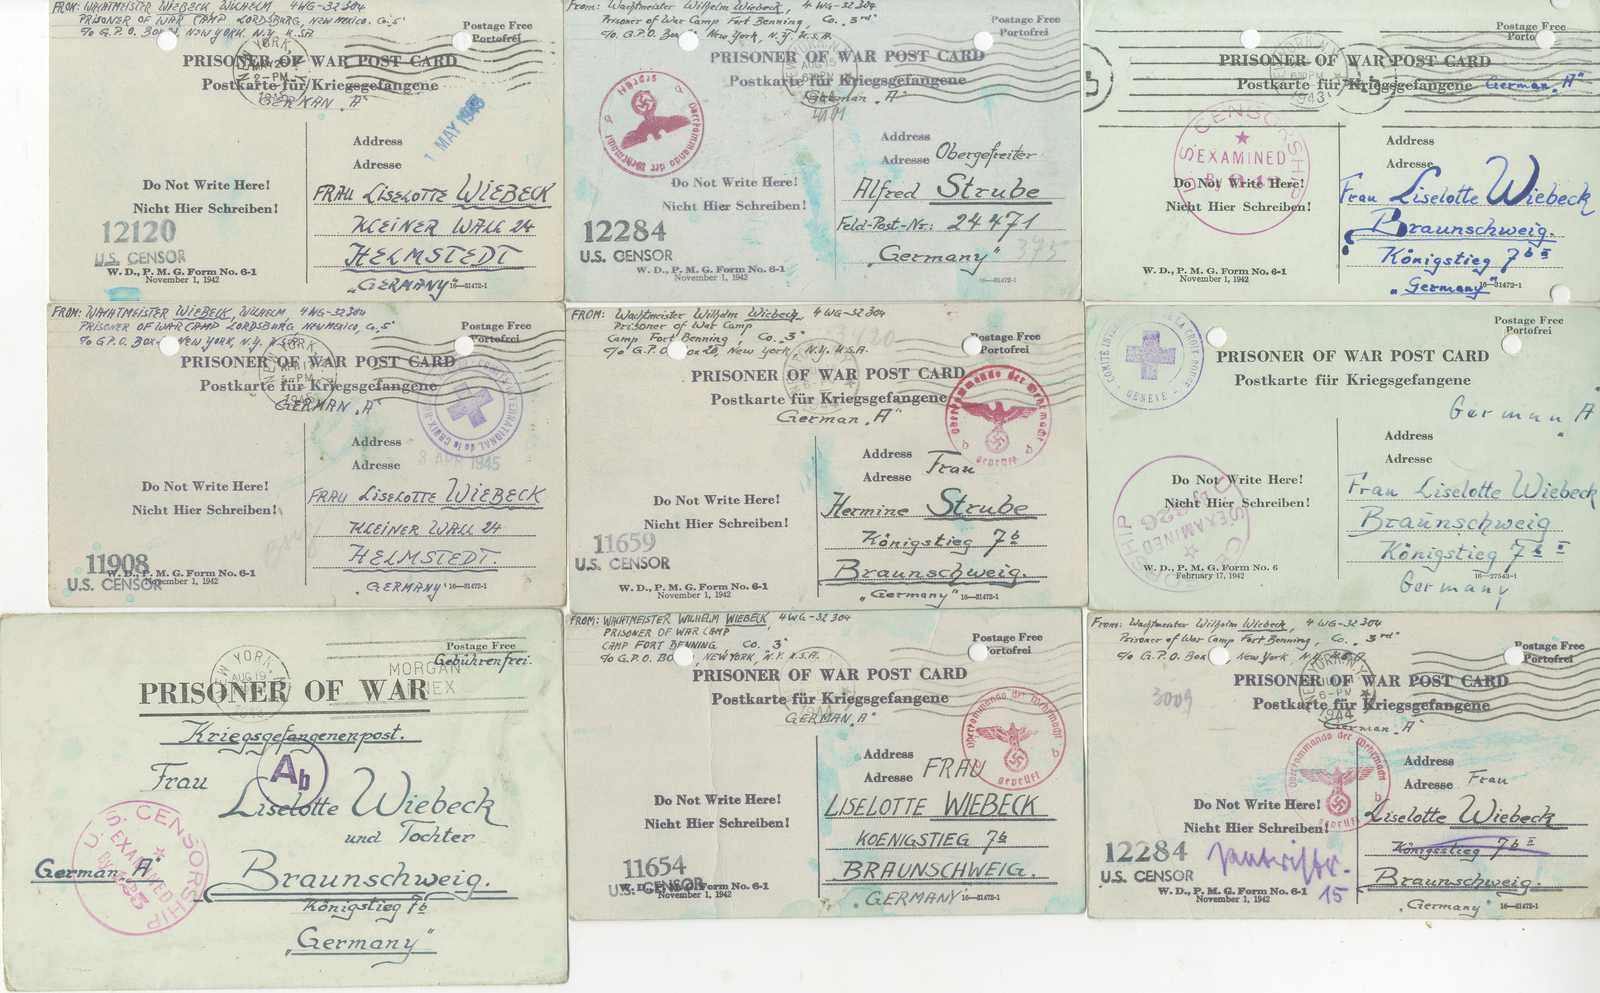 FROM: WACHTMEISTER WIEBECK WILHELM 4WG-32304
PRISONER OF WAR CAMP LORDSBURG, NEW MEXICO. Co. 5
c/o G.P.O. Box NEW YORK, N.Y. U.S.A
Postage Free
Portofrei
NEW YORK,
2-PM
PRISONER OF WAR POST CARD
Postkarte für Kriegsgefangene
GERMAN "A"
1 MAY 1945
Address
Adresse
Do Not Write Here!
Nicht Hier Schreiben!
FRAU LISELOTTE WIEBECK
KLEINER WALL 24
HELMSTEDT
"GERMANY"
12120
U.S. CENSOR
W. D., P. M. G. Form No. 6-1
November 1, 1942
16—31472-1
From: Wachtmeister Wilhelm Wiebeck, 4 WG-32304
Prisoner of War Camp Fort Benning, Co. 3rd
c/o G.P.O. Box New York, N.Y. U.S.A.
Postage Free
Portofrei
AUG
PRISONER OF WAR POST CARD
Postkarte für Kriegsgefangene
German "A"
Oberkommando der Wehrmacht
geprüft
b
Address
Adresse
Obergefreiter
Alfred Strube
Feld-Post-Nr: 24471
"Germany"
395
Do Not Write Here!
Nicht Hier Schreiben!
12284
U.S. CENSOR
W. D., P. M. G. Form No. 6-1
November 1, 1942
16—31472-1
Postage Free
Portofrei
PRISONER OF WAR POST CARD
Postkarte für Kriegsgefangene German "A"
1943
U.S. CENSORSHIP
EXAMINED
BY
Address
Adresse
Do Not Write Here!
Nicht Hier Schreiben!
Frau Liselotte Wiebeck
Braunschweig.
Königstieg 7b II
"Germany"
W. D., P. M. G. Form No. 6-1
November 1, 1942
16—31472-1
FROM: WACHTMEISTER WIEBECK, WILHELM, 4WG-32304
PRISONER OF WAR CAMP LORDSBURG NEW MEXICO, Co, 5
c/o G.P.O. Box NEW YORK, N.Y. U.S.A.
Postage Free
Portofrei
PRISONER OF WAR POST CARD
Postkarte für Kriegsgefangene
GERMAN "A"
COMITÉ INTERNATIONAL de la CROIX-ROUGE
1945
Address
Adresse
Do Not Write Here!
Nicht Hier Schreiben!
FRAU LISELOTTE WIEBECK
KLEINER WALL 24
HELMSTEDT.
"GERMANY"
11908
U.S. CENSOR
W. D., P. M. G. Form No. 6-1
November 1, 1942
16—31472-1
FROM: Wachtmeister Wilhelm Wiebeck, 4 WG-32304
Prisoner of War Camp
Camp Fort Benning, Co. 3
c/o G.P.O. Box 20, New York, N.Y. U.S.A.
Postage Free
Portofrei
PRISONER OF WAR POST CARD
Postkarte für Kriegsgefangene
German "A"
Oberkommando der Wehrmacht
geprüft
b
Address
Adresse
Frau
Hermine Strube
Königstieg 7b
Braunschweig.
"Germany"
Do Not Write Here!
Nicht Hier Schreiben!
11659
U.S. CENSOR
W. D., P. M. G. Form No. 6-1
November 1, 1942
16—31472-1
COMITÉ INTERNATIONAL DE LA CROIX-ROUGE
GENÈVE
Postage Free
Portofrei
PRISONER OF WAR POST CARD
Postkarte für Kriegsgefangene
German A
Address
Adresse
Do Not Write Here!
Nicht Hier Schreiben!
U.S. CENSORSHIP
EXAMINED
Frau Liselotte Wiebeck
Braunschweig
Königstieg 7b II
Germany
W. D., P. M. G. Form No. 6
February 17, 1942
16—27543-1
NEW YORK,
AUG 19
Postage Free
Gebührenfrei.
MORGAN
PRISONER OF WAR
Kriegsgefangenenpost.
Ab
Frau
Liselotte Wiebeck
und Tochter
Braunschweig.
Königstieg 7b
"Germany"
German "A"
U.S. CENSORSHIP
EXAMINED
BY
FROM: WACHTMEISTER WILHELM WIEBECK, 4WG-32304
PRISONER OF WAR CAMP
CAMP FORT BENNING, Co. 3
c/o G.P.O. Box NEW YORK, N.Y. U.S.A.
Postage Free
Portofrei
PRISONER OF WAR POST CARD
Postkarte für Kriegsgefangene
GERMAN "A"
1944
Oberkommando der Wehrmacht
geprüft
b
Address
Adresse
FRAU
LISELOTTE WIEBECK
KOENIGSTIEG 7b
BRAUNSCHWEIG.
"GERMANY"
Do Not Write Here!
Nicht Hier Schreiben!
11654
U.S. CENSOR
W. D., P. M. G. Form No. 6-1
November 1, 1942
16—31472-1
From: Wachtmeister Wilhelm Wiebeck, 4 WG-32304
Prisoner of War Camp Fort Benning, Co. 3rd
c/o G.P.O. Box New York, N.Y. U.S.A
Postage Free
Portofrei
NEW YORK, N.Y.
6-PM
1944
3009
PRISONER OF WAR POST CARD
Postkarte für Kriegsgefangene
German "A"
Oberkommando der Wehrmacht
geprüft
b
Address
Adresse
Frau
Liselotte Wiebeck
Königstieg 7b II
Braunschweig.
"Germany"
Do Not Write Here!
Nicht Hier Schreiben!
12284
U.S. CENSOR
15
W. D., P. M. G. Form No. 6-1
November 1, 1942
16—31472-1